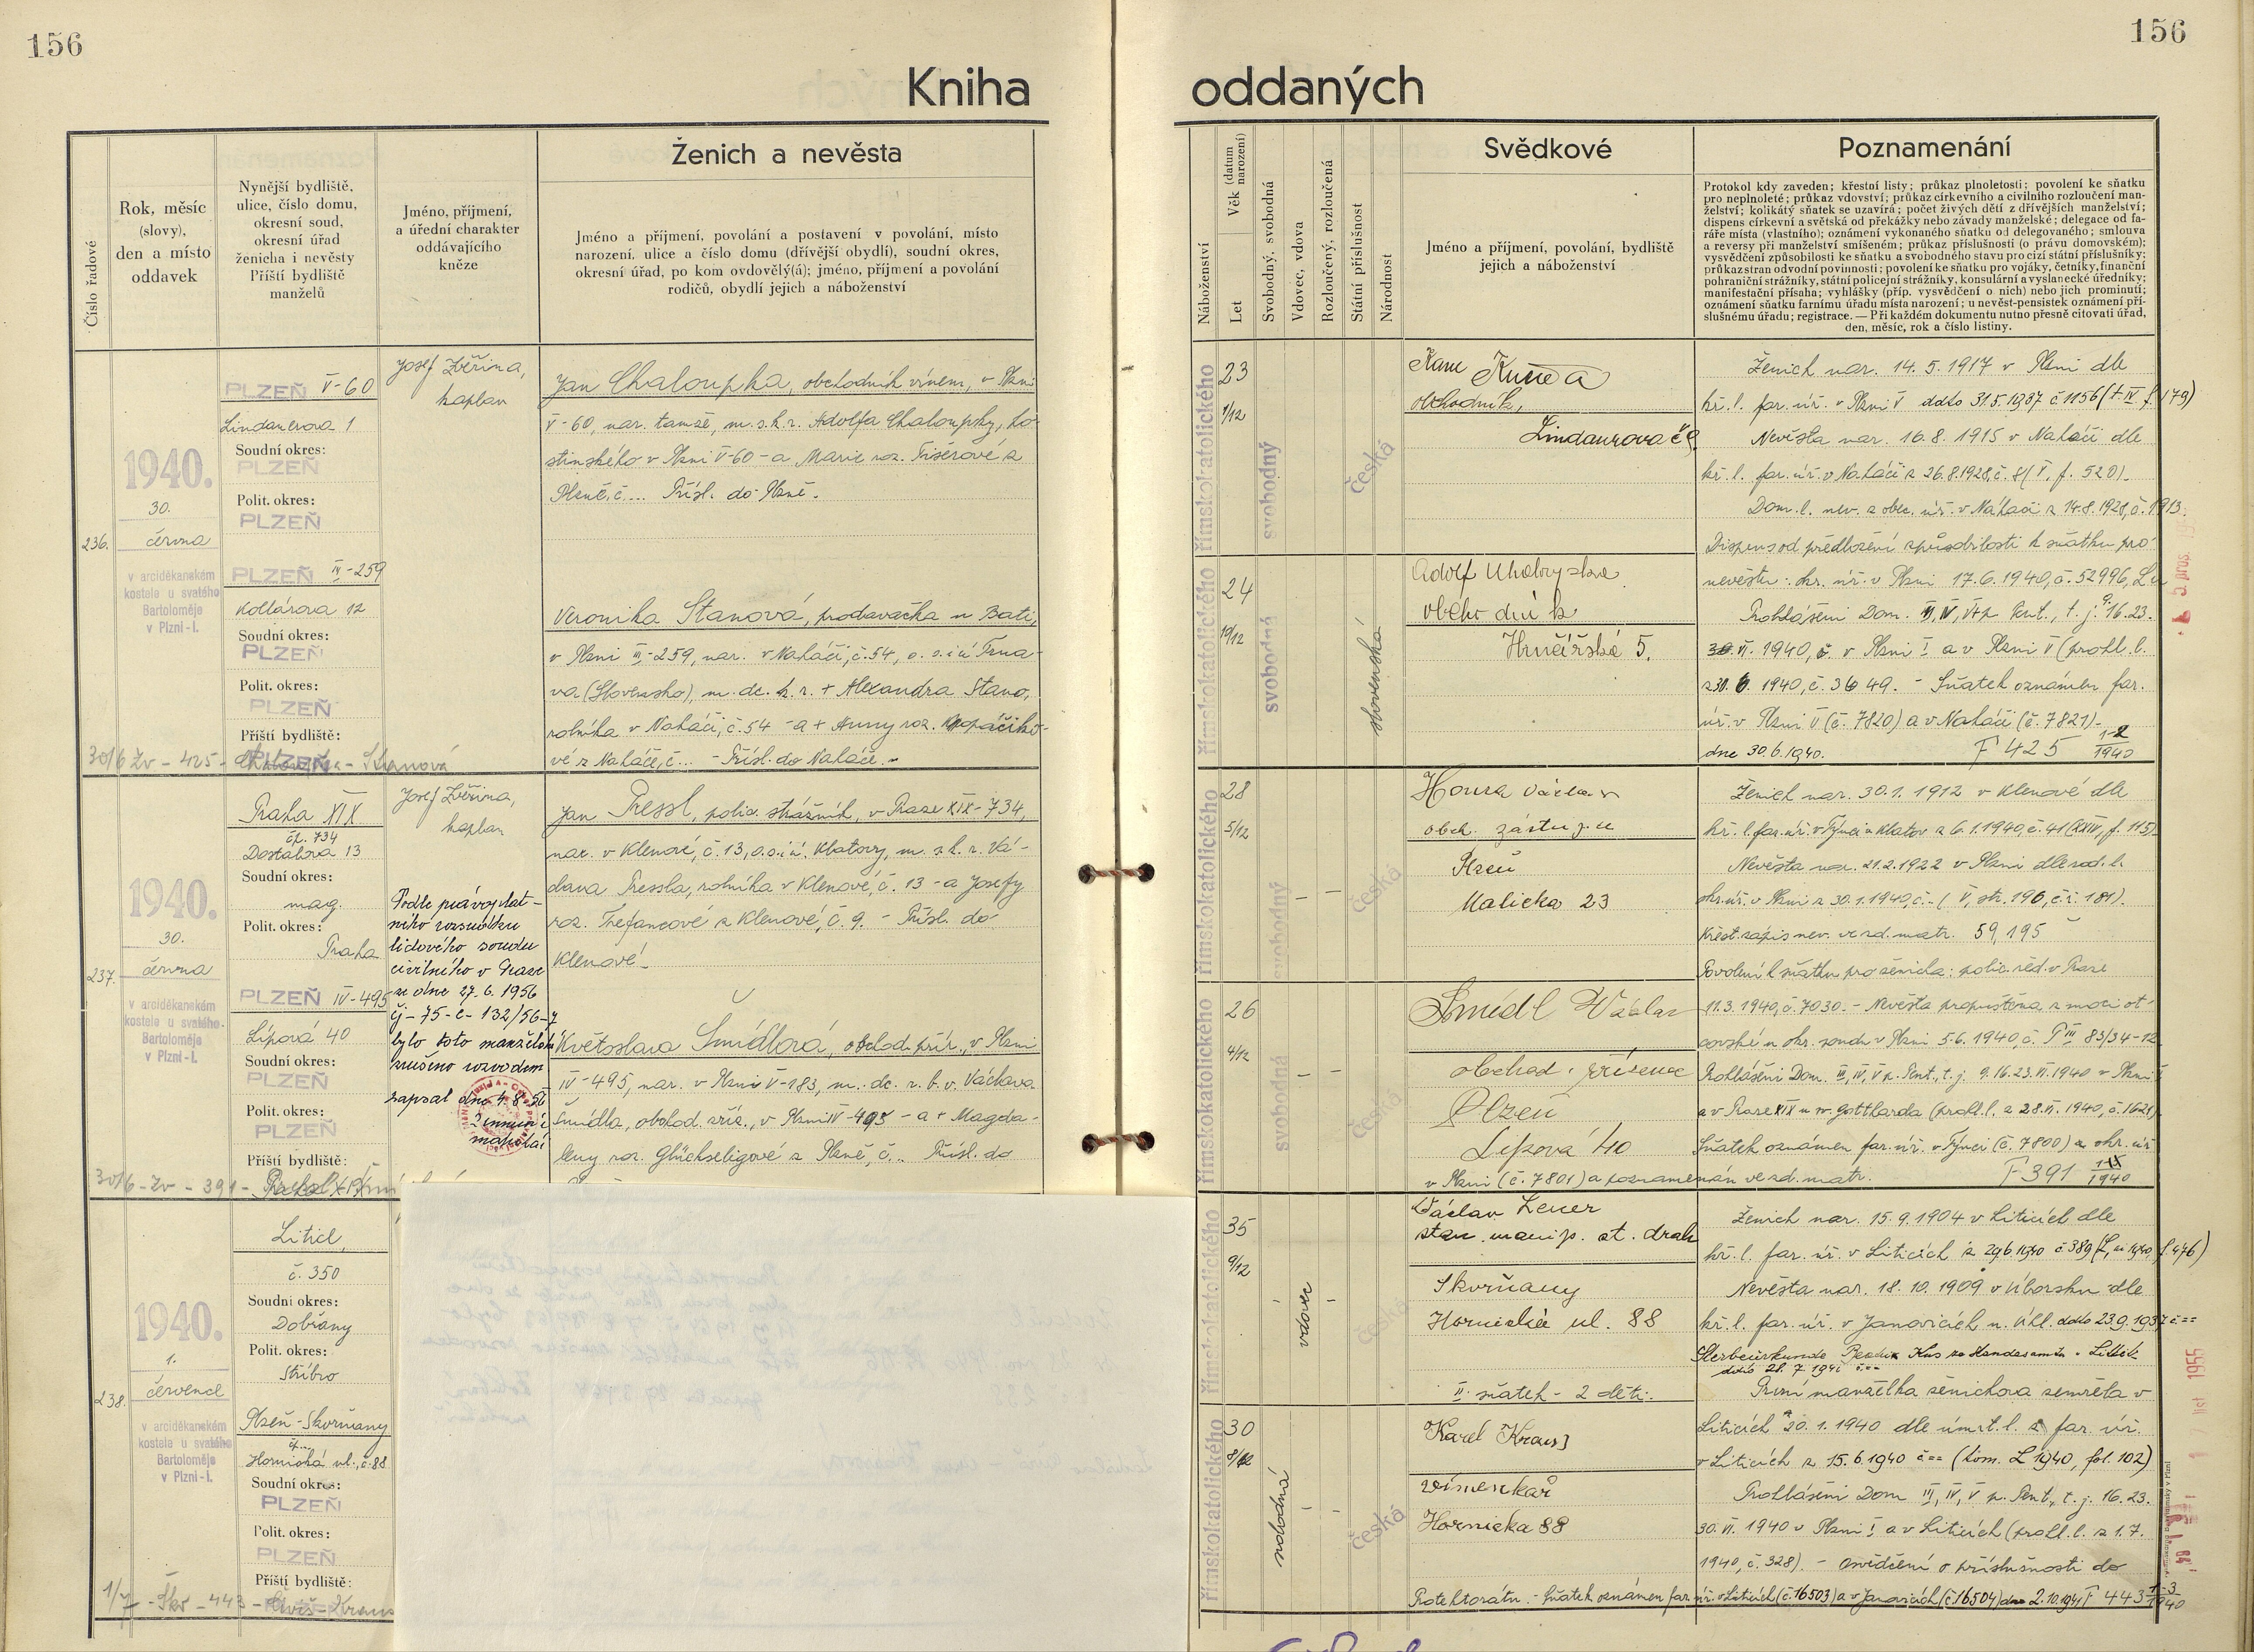 156
156
Kniha
oddaných
Číslo řadové
Rok, měsíc
(slovy),
den a místo
oddavek
Nynější bydliště,
ulice, číslo domu,
okresní soud,
okresní úřad
ženicha i nevěsty
Příští bydliště
manželů
Jméno, příjmení,
a úřední charakter
oddávajícího
kněze
Ženich a nevěsta
Jméno a příjmení, povolání a postavení v povolání, místo
narození, ulice a číslo domu (dřívější obydlí), soudní okres,
okresní úřad, po kom ovdovělý(á); jméno, příjmení a povolání
rodičů, obydlí jejich a náboženství
Náboženství
Věk (datum narození)
Let
Svobodný, svobodná
Vdovec, vdova
Rozloučený, rozloučená
Státní příslušnost
Národnost
Svědkové
Jméno a příjmení, povolání, bydliště
jejich a náboženství
Poznamenání
Protokol kdy zaveden; křestní listy; průkaz plnoletosti; povolení ke sňatku
pro neplnoleté; průkaz vdovství; průkaz církevního a civilního rozloučení man-
želství; kolikátý sňatek se uzavírá; počet živých dětí z dřívějších manželství;
dispens církevní a světská od překážky nebo závady manželské; delegace od fa-
ráře místa (vlastního); oznámení vykonaného sňatku od delegovaného; smlouva
a reversy při manželství smíšeném; průkaz příslušnosti (o právu domovském);
vysvědčení způsobilosti ke sňatku a svobodného stavu pro cizí státní příslušníky;
průkaz stran odvodní povinnosti; povolení ke sňatku pro vojáky, četníky, finanční
pohraniční strážníky, státní policejní strážníky, konsulární a vyslanecké úředníky;
manifestační přísaha; vyhlášky (příp. vysvědčení o nich) nebo jich prominutí;
oznámení sňatku farnímu úřadu místa narození; u nevěst-pensistek oznámení pří-
slušnému úřadu; registrace. — Při každém dokumentu nutno přesně citovati úřad,
den, měsíc, rok a číslo listiny.
236.
1940.
30.
června
v arciděkanském
kostele u svatého
Bartoloměje
v Plzni-I.
PLZEŇ V-60
Lindauerova 1
Soudní okres:
PLZEŇ
Polit. okres:
PLZEŇ
PLZEŇ III-259
Kollárova 12
Soudní okres:
PLZEŇ
Polit. okres:
PLZEŇ
Příští bydliště:
PLZEŇ
30/6 Zv - 425 - Chaloupka - Stanová
Josef Zvěřina,
kaplan
Jan Chaloupka, obchodník vínem, v Plzni
V-60, nar. tamže, m. s. k. r. Adolfa Chaloupky, ho-
stinského v Plzni V-60 - a Marie roz. Fišerové z
Plzně, č... Přísl. do Plzně.
Veronika Stanová, prodavačka u Bati,
v Plzni III-259, nar. v Naháči, č. 54, o. s. i ú Trna-
va (Slovensko), m. dc. k. r. + Alexandra Stano,
rolníka v Naháči, č. 54 - a + Anny roz.
vé z Naháče, č... - Přísl. do Naháče.
římskokatolického
23
1/12
svobodný
česká
obchodník,
Lindaurova
římskokatolického
24
10/12
svobodná
slovenská
Adolf
Hrnčířská 5.
Ženich nar. 14. 5. 1917 v Plzni dle
kř. l. far. úř. v Plzni V ddto 31.5.1937 č 1156 (t IV f. 179)
Nevěsta nar. 16. 8. 1915 v Naháči dle
kř. l. far. úř. v Naháči z 26.8.1928, č. 8 (V, f. 520).
Dom. l. nev. z obec. úř. v Naháči z 14.8.1928, č. 1913.
Dispens od předložení způsobilosti k sňatku pro
nevěstu: okr. úř. v Plzni 17.6.1940, č. 52996,
Prohlášení Dom. III, IV, V p. Pent., t. j. 9. 16. 23.
30. VI. 1940, č. v Plzni I a v Plzni V (prohl. l.
z 30. 6. 1940, č. 3649. - Sňatek oznámen far.
úř. v Plzni V (č. 7820) a v Naháči (č. 7821)
dne 30.6.1940. F 425 1-2 1940
237.
1940.
30.
června
v arciděkanském
kostele u svatého
Bartoloměje
v Plzni-I.
Praha XIX
čp. 734
Dostálova 13
Soudní okres:
mag.
Polit. okres:
Praha
PLZEŇ IV-495
Lípová 40
Soudní okres:
PLZEŇ
Polit. okres:
PLZEŇ
Příští bydliště:
30/6 - Zv - 391 -
Josef Zvěřina,
kaplan
Podle právoplat-
ního rozsudku
lidového soudu
civilního v Praze
ze dne 27. 6. 1956
čj - 75 - C - 132/56-7
bylo toto manželství
zrušeno rozvodem
zapsal dne 4. 8. 56
Jan Pressl, polic. strážník, v Praze XIX-734,
nar. v Klenové, č. 13, o. s. i ú. Klatovy, m. s. k. r. Vá-
clava Pressla, rolníka v Klenové, č. 13 - a Josefy
roz. Trefancové z Klenové, č. 9. - Přísl. do
Klenové.
Květoslava Šmídlová, obchod. přír., v Plzni
IV-495, nar. v Plzni V-183, m. dc. r. b. v. Václava
Šmídla, obchod. zříz., v Plzni IV-495 - a + Magda-
leny roz. Glückseligové z Plzně, č... Přísl. do
římskokatolického
28
5/12
svobodný
česká
římskokatolického
26
4/12
svobodná
česká
Houra Václav
obch. zástupce
Plzeň
Malická 23
Šmídl Václav
obchod. příručí
Plzeň
Lípová 40
Ženich nar. 30. 1. 1912 v Klenové dle
kř. l. far. úř. v Týnci u Klatov z 6.1.1940, č. 41 (XXIV, f. 115).
Nevěsta nar. 21.2.1922 v Plzni dle rod. l.
okr. úř. v Plzni z 30.1.1940, č. - (V, str. 196, č. ř. 181).
Křest. zápis nev. ve zd. matr. 59, 195
Povolení k sňatku pro ženicha: polic. řed. v Praze
11.3.1940, č. 7030. - Nevěsta propuštěna z moci ot-
covské u okr. soudu v Plzni 5.6.1940, č. P III 83/34-12
Prohlášení Dom. III, IV, V p. Pent., t. j. 9. 16. 23. VI. 1940 v Plzni
a v Praze XIX u sv. Gottharda (prohl. l. z 28. VI. 1940, č. 1621)
Sňatek oznámen far. úř. v Týnci (č. 7800) a okr. úř.
v Plzni (č. 7801) a poznamenán ve zd. matr. F 391 1940
238.
1940.
1.
července
v arciděkanském
kostele u svatého
Bartoloměje
v Plzni-I.
Litice,
č. 350
Soudní okres:
Dobřany
Polit. okres:
Stříbro
Plzeň-Skvrňany
Hornická ul., č. 88
Soudní okres:
PLZEŇ
Polit. okres:
PLZEŇ
Příští bydliště:
1/7 - Skv - 443 - Kraus
římskokatolického
35
9/12
vdovec
česká
římskokatolického
30
8/12
rozvedená
česká
Václav Lener
stan. manip. st. drah
Skvrňany
Hornická ul. 88
II. sňatek - 2 děti.
Karel Kraus
Hornicka 88
Ženich nar. 15. 9. 1904 v Liticích dle
kř. l. far. úř. v Liticích z 29.6.1940 č 389
Nevěsta nar. 18. 10. 1909 v Úborsku dle
kř. l. far. úř. v Janovicích n. Úhl. ddto 23.9.1937 č ==
První manželka ženichova zemřela v
Liticích 20. 1. 1940 dle úmrt. l. z far. úř.
v Liticích z 15.6.1940 č == (tom. L 1940, fol. 102)
Prohlášení Dom III, IV, V p. Pent., t. j. 16. 23.
30. VI. 1940 v Plzni I a v Liticích (prohl. l. z 1. 7.
1940, č. 328). - osvědčení o příslušnosti do
Protektorátu. - Sňatek oznámen far. úř. v Liticích (č. 16503) a v Janovicích (č. 16504) dne 2.10.1941 F 443 1-3 1940